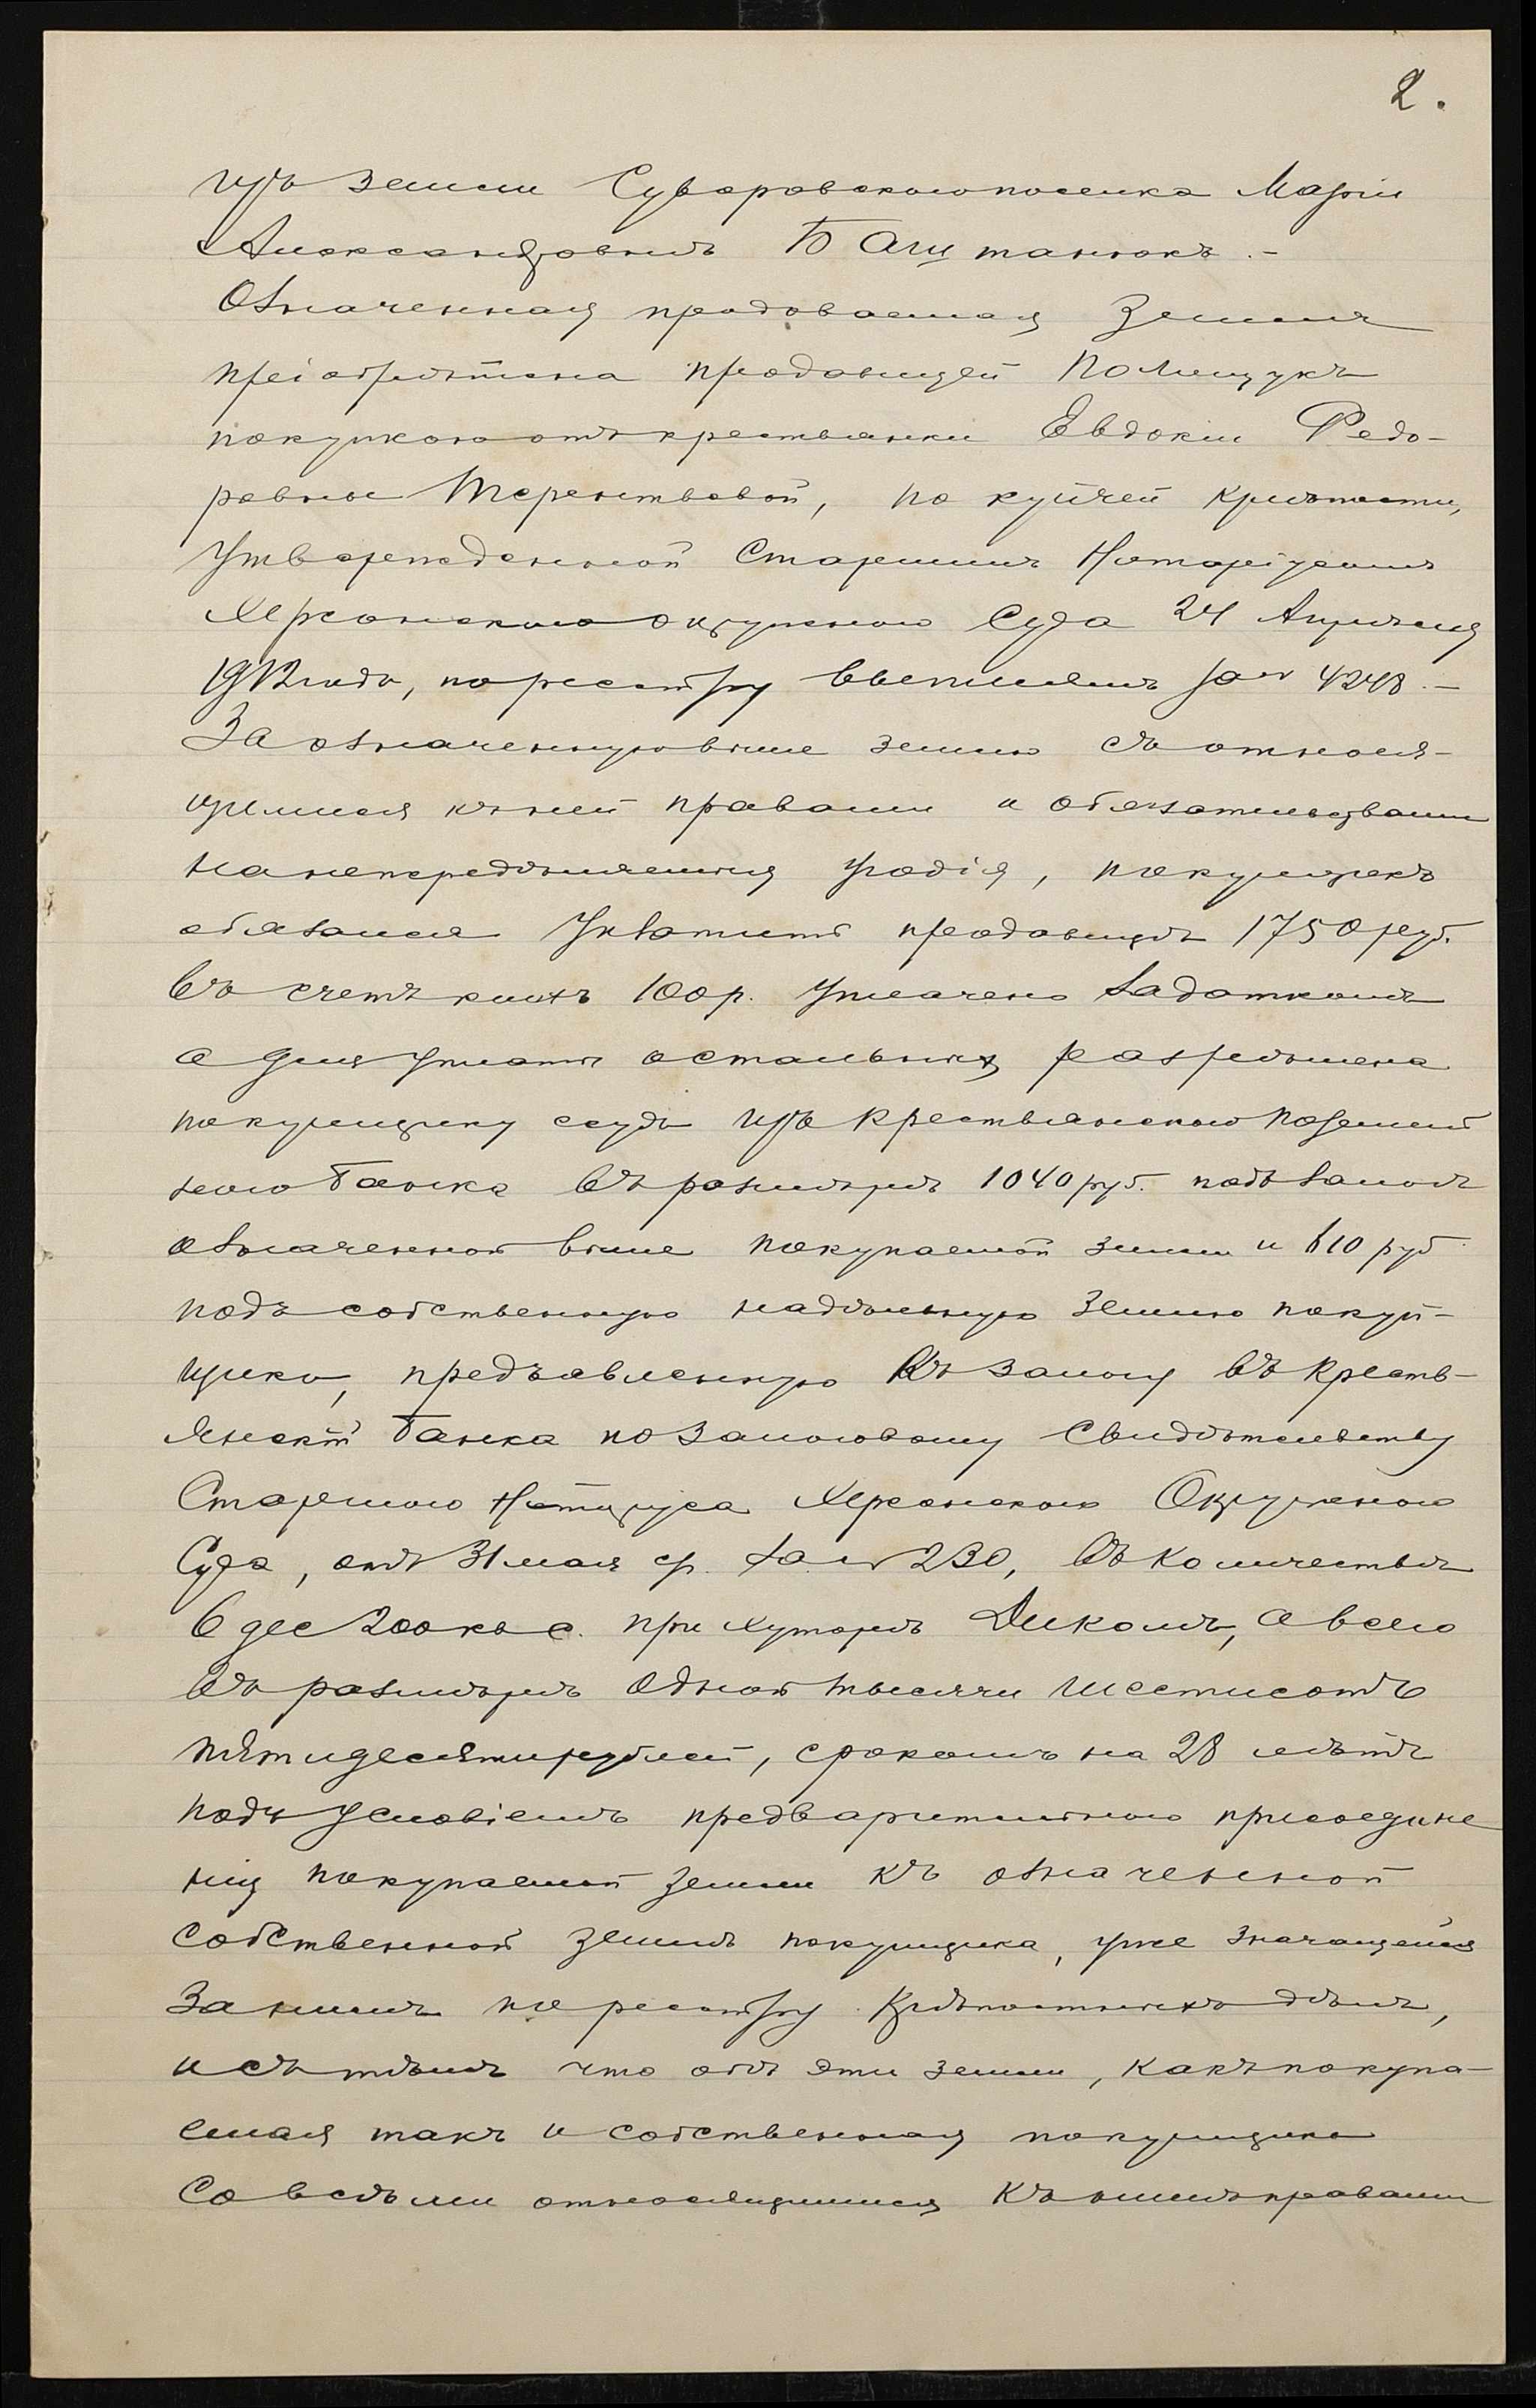 2.
изъ земли Суворовского поселка Маріи
Александровнѣ Баштанюкъ.-
Означенная продоваемая Земля
пріобрѣтена продавицей Полищукъ
покупкою отъ крестьянки Евдокіи Федо-
ровны Терентьевой, по купчей крѣпости,
Утвержденной Старшимъ Нотаріусомъ
Херсонского окружного Суда 24 Апрѣля
1912 года, по реестру ввепшемъ за № 4248.-
За означенную выше землю съ относя-
щимися къ ней правами и обязательствами
на непередѣляемыя угодія, покупщикъ
обязался Уплатить продавицѣ 1750 руб.
Въ счетъ коихъ 100 р. Уплачено Задаткомъ
а для Уплаты остальныхъ разрѣшена
покупщику ссуда изъ Крестьянского Поземель
ного Банка въ размѣрѣ 1040 руб. подъ залогъ
означенной выше покупаемой земли и 610 руб
подъ собственную надѣльную Землю покуп-
щика, предъявленную Къ залогу въ Кресть-
янскій Банка по Залоговому Свидѣтельству
Старшого Нотаріуса Херсонского Окружного
Суда, отъ 31 мая с/г. За № 230, въ Количествѣ
6 дес 200 кв с. при хуторѣ Дикомъ, а всего
въ размѣрѣ Одной тысячи шестисотъ
пятидесяти рублей, срокомъ на 28 лѣтъ
подъ Условіемъ предварительного присоедине
нія покупаемой земли къ означенной
собственной землѣ покупщика, уже значащейся
За нимъ по реестру крѣпостныхъ дѣлъ,
и съ тѣмъ что обѣ эти земли, какъ покупа-
емая такъ и собственная покупщика
Со всѣми относящимися Къ нимъ правами